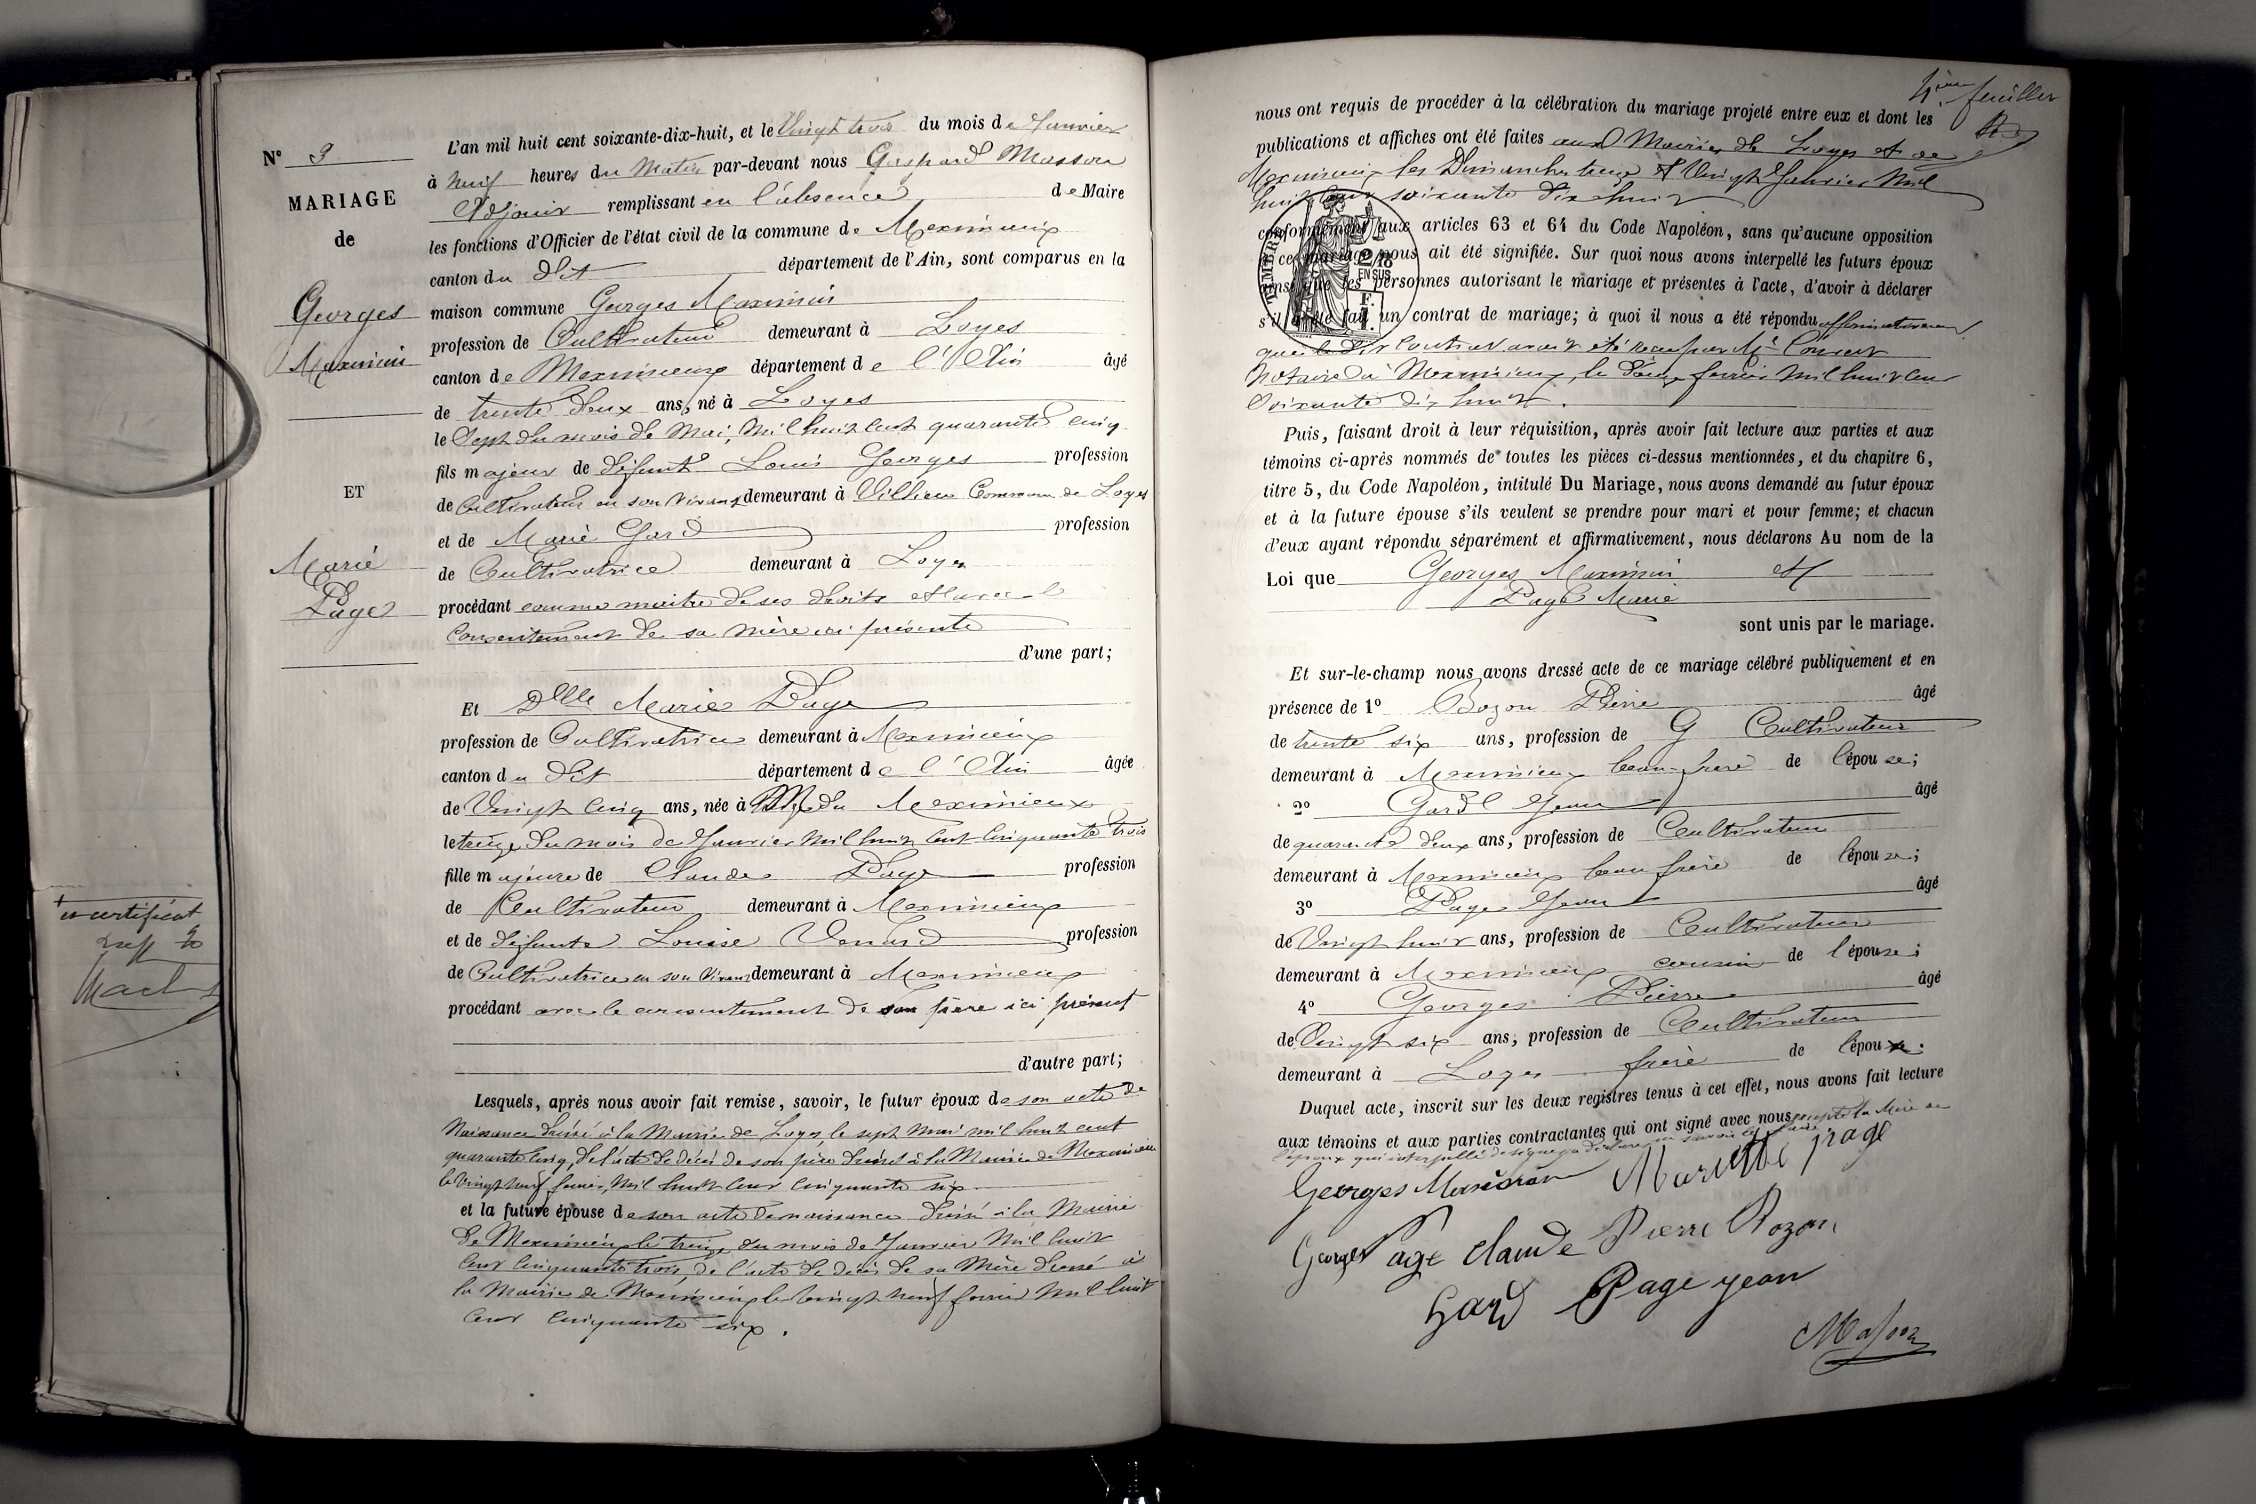 N° 3
MARIAGE
de
Georges
Maximin
ET
Marie
Page
L'an mil huit cent soixante-dix-huit, et le Vingt trois du mois de Janvier
à neuf heures du Matin par-devant nous Gaspard Masson
Adjoint remplissant en l'absence de Maire
les fonctions d'Officier de l'état civil de la commune de Meximieux
canton du dit département de l'Ain, sont comparus en la
maison commune Georges Maximin
profession de Cultivateur demeurant à Loyes
canton de Meximieux département de l'Ain âgé
de trente deux ans, né à Loyes
le Sept du mois de Mai, Mil huit cent quarante cinq
fils majeur de défunt Louis Georges profession
de Cultivateur en son vivant demeurant à Villieu Commune de Loyes
et de Marie Gard profession
de Cultivatrice demeurant à Loyes
procédant comme maitre de ses droits et avec le
consentement de sa mère ici présente
d'une part;
Et Dlle Marie Page
profession de Cultivatrice demeurant à Meximieux
canton du dit département de l'Ain âgée
de Vingt cinq ans, née à Meximieux
le treize du mois de Janvier Mil huit cent cinquante trois
fille majeure de Claude Page profession
de Cultivateur demeurant à Meximieux
et de défunte Louise Venard profession
de Cultivatrice en son vivant demeurant à Meximieux
procédant avec le consentement de son père ici présent
d'autre part;
Lesquels, après nous avoir fait remise, savoir, le futur époux de son acte de
Naissance dressé à la Mairie de Loyes, le sept Mai mil huit cent
quarante cinq, de l'acte de décès de son père dressé à la Mairie de Meximieux
le Vingt neuf février, Mil huit cent cinquante six
et la future épouse de son acte de naissance dressé à la Mairie
de Meximieux le treize du mois de Janvier Mil huit
cent cinquante trois, de l'acte de décès de sa Mère dressé à
la Mairie de Meximieux le vingt neuf février Mil huit
cent cinquante six.
un certificat
4ème feuillet
nous ont requis de procéder à la célébration du mariage projeté entre eux et dont les
publications et affiches ont été faites aux Mairies de Loyes et de
Meximieux les Dimanches treize et Vingt Janvier Mil
huit cent soixante dix huit
conformément aux articles 63 et 64 du Code Napoléon, sans qu'aucune opposition
à ce mariage nous ait été signifiée. Sur quoi nous avons interpellé les futurs époux
ainsi que les personnes autorisant le mariage et présentes à l'acte, d'avoir à déclarer
s'il a été fait un contrat de mariage; à quoi il nous a été répondu affirmativement
que le dit Contrat avait été reçu par Me
notaire à Meximieux, le février Mil huit cent
Soixante dix huit.
TIMBRE
2/10
EN SUS
Puis, faisant droit à leur réquisition, après avoir fait lecture aux parties et aux
témoins ci-après nommés de toutes les pièces ci-dessus mentionnées, et du chapitre 6,
titre 5, du Code Napoléon, intitulé Du Mariage, nous avons demandé au futur époux
et à la future épouse s'ils veulent se prendre pour mari et pour femme; et chacun
d'eux ayant répondu séparément et affirmativement, nous déclarons Au nom de la
Loi que Georges Maximin et
Page Marie
sont unis par le mariage.
Et sur-le-champ nous avons dressé acte de ce mariage célébré publiquement et en
présence de 1° Bozon Pierre âgé
de trente six ans, profession de Cultivateur
demeurant à Meximieux beau-frère de l'épouse;
2° Gard Jean âgé
de quarante deux ans, profession de Cultivateur
demeurant à Meximieux beau frère de l'épouse;
3° Page Jean âgé
de Vingt huit ans, profession de Cultivateur
demeurant à Meximieux cousin de l'épouse;
4° Georges Pierre âgé
de Vingt six ans, profession de Cultivateur
demeurant à Loyes frère de l'époux.
Duquel acte, inscrit sur les deux registres tenus à cet effet, nous avons fait lecture
aux témoins et aux parties contractantes qui ont signé avec nous excepté la Mère de
l'époux qui interpellée de signer a déclaré ne savoir le faire
Georges Maximin Mariette page
Georges Page Claude Pierre Bozon
Gard Page jean
Masson